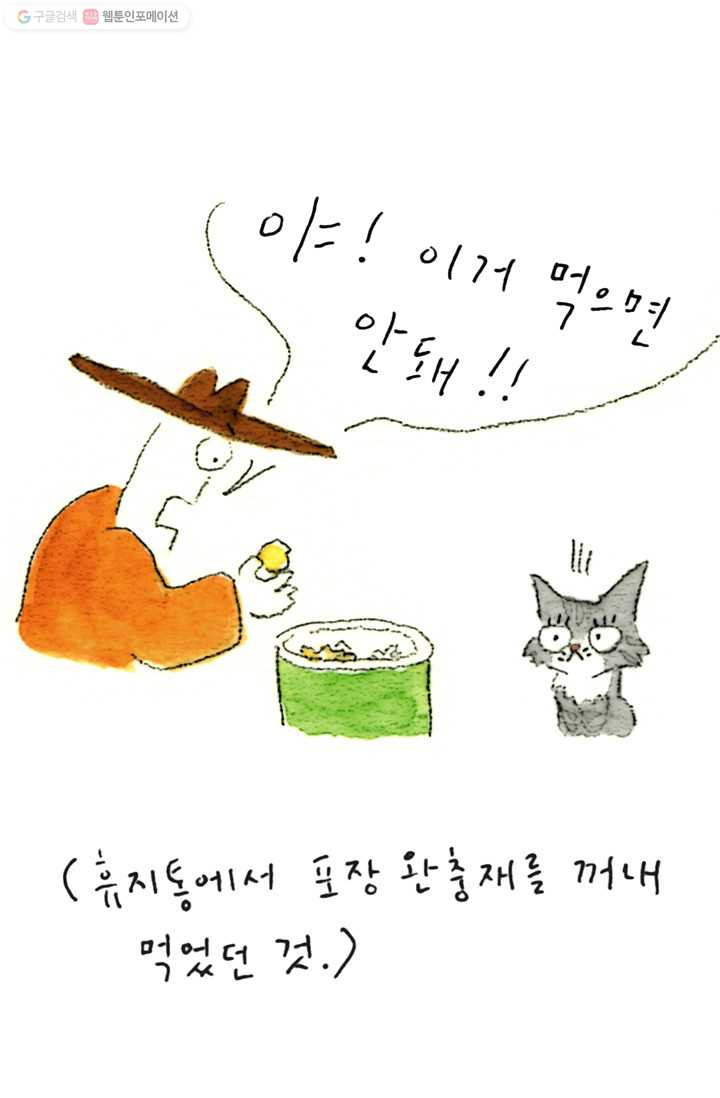 구글검색 웹툰인포메이션
야! 이거 먹으면
안돼!!
(휴지통에서 포장 완충재를 꺼내
먹었던 것.)